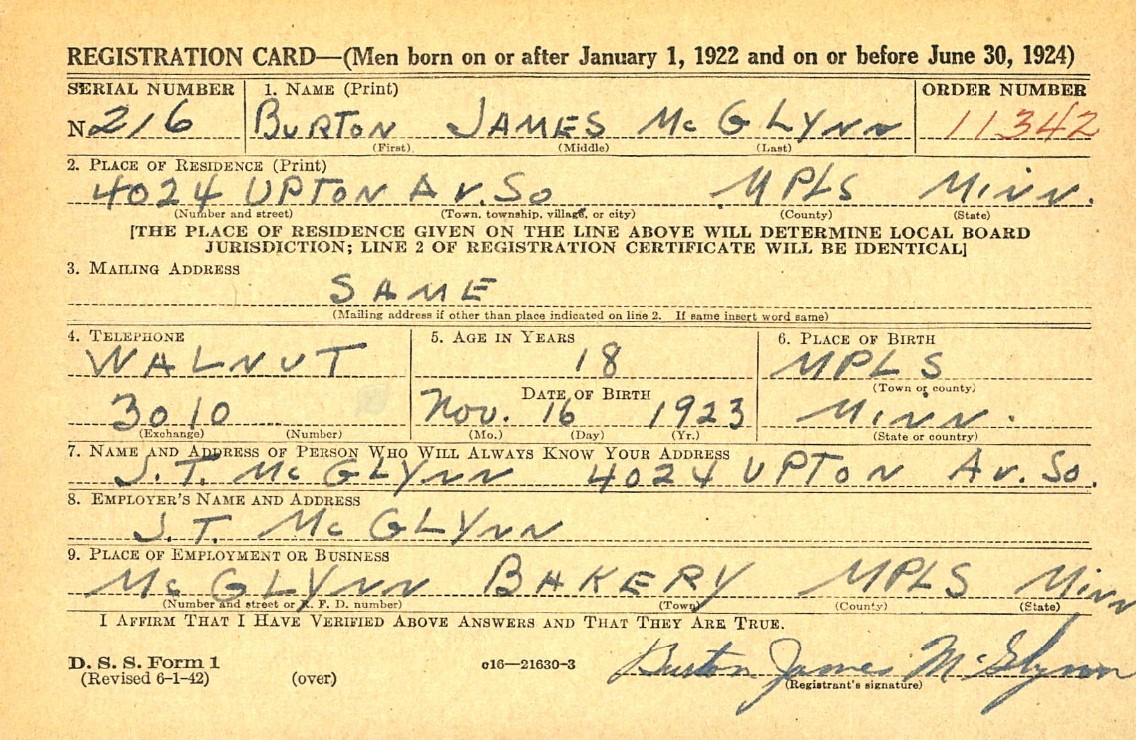 REGISTRATION CARD—(Men born on or after January 1, 1922 and on or before June 30, 1924)
SERIAL NUMBER 1. NAME (Print) ORDER NUMBER
N 216 BURTON JAMES McGLYNN 11342
(First) (Middle) (Last)
2. PLACE OF RESIDENCE (Print)
4024 UPTON AV. SO MPLS MINN.
(Number and street) (Town, township, village, or city) (County) (State)
[THE PLACE OF RESIDENCE GIVEN ON THE LINE ABOVE WILL DETERMINE LOCAL BOARD
JURISDICTION; LINE 2 OF REGISTRATION CERTIFICATE WILL BE IDENTICAL]
3. MAILING ADDRESS
SAME
(Mailing address if other than place indicated on line 2. If same insert word same)
4. TELEPHONE 5. AGE IN YEARS 6. PLACE OF BIRTH
WALNUT 18 MPLS
DATE OF BIRTH (Town or county)
3010 Nov. 16 1923 MINN.
(Exchange) (Number) (Mo.) (Day) (Yr.) (State or country)
7. NAME AND ADDRESS OF PERSON WHO WILL ALWAYS KNOW YOUR ADDRESS
J. T. McGLYNN 4024 UPTON AV. SO.
8. EMPLOYER'S NAME AND ADDRESS
J. T. McGLYNN
9. PLACE OF EMPLOYMENT OR BUSINESS
McGLYNN BAKERY MPLS MINN
(Number and street or R. F. D. number) (Town) (County) (State)
I AFFIRM THAT I HAVE VERIFIED ABOVE ANSWERS AND THAT THEY ARE TRUE.
D. S. S. Form 1 c16—21630-3 Burton James McGlynn
(Revised 6-1-42) (over) (Registrant's signature)